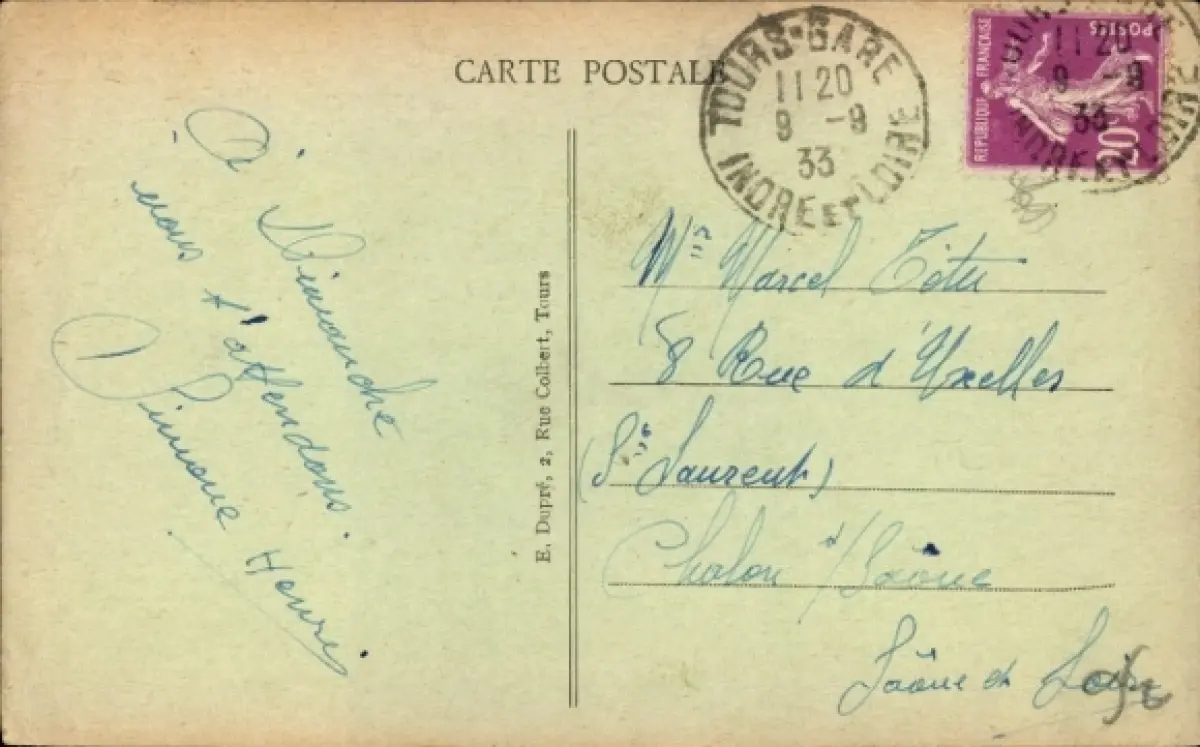 CARTE POSTALE
TOURS-GARE
11 20
9 -9
33
INDRE ET LOIRE
REPUBLIQUE FRANÇAISE
POSTES
20c
11 20
9 -9
33
INDRE ET LOIRE
A Dimanche
nous t'attendons.
Simone Henri
E. Dupré, 2, Rue Colbert, Tours
Marcel Tétu
8 Rue d'Uxelles
(St Laurent)
Chalon s/Saône
Saône et Loire